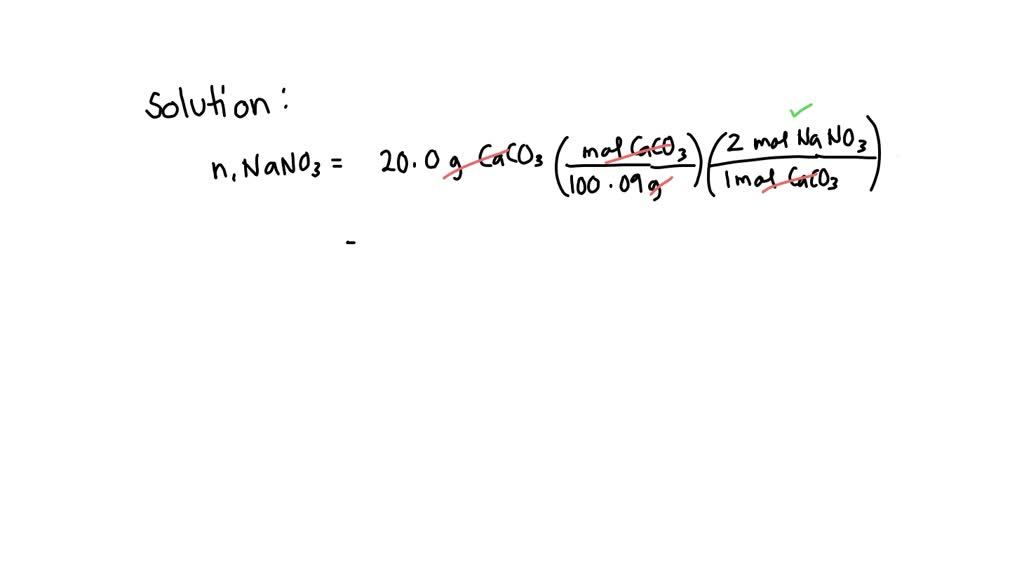 Solution:
n, NaNO₃ = 20.0 g CaCO₃ (mol CaCO₃ / 100.09 g) (2 mol NaNO₃ / 1 mol CaCO₃)
=